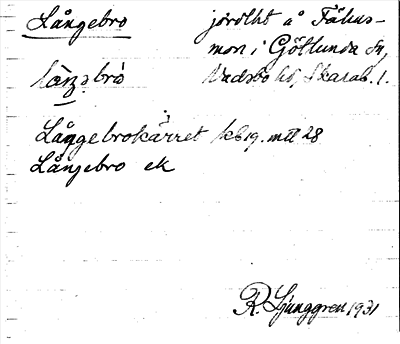 Långebro jordlht å Fähus-
mon i Götlunda sn,
Vadsbo hd, Skarab. l.
Långebrokärret kb 19. mtl 28
Långebro ek
R. Ljunggren 1931